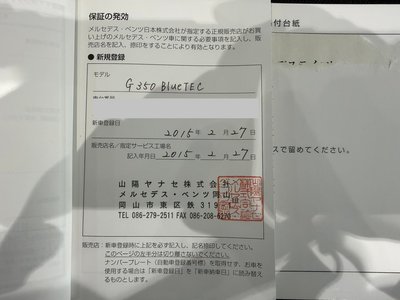 保証の発効
メルセデス・ベンツ日本株式会社が指定する正規販売店がお買
い上げのメルセデス・ベンツ車に関する必要事項を記入し、販
売店名を記入、捺印をすることにより有効となります。
●新規登録
モデル
G 350 BlueTEC
新車登録日
2015年 2月 27日
販売店名/指定サービス工場名
記入年月日 2015年 2月 27日
山陽ヤナセ株式会社
メルセデス・ベンツ岡山
岡山市東区鉄319
TEL 086-279-2511 FAX 086-208-6270
販売店:新車登録時に上記を必ず記入し、記名捺印してください。
このページの左半分は切り離さないでください。
ナンバープレート(自動車登録番号標)を取得せず、お車を
使用する場合は「新車登録日」を「新車納車日」に読み替え
るものとします。
付台紙
スで留めてください。